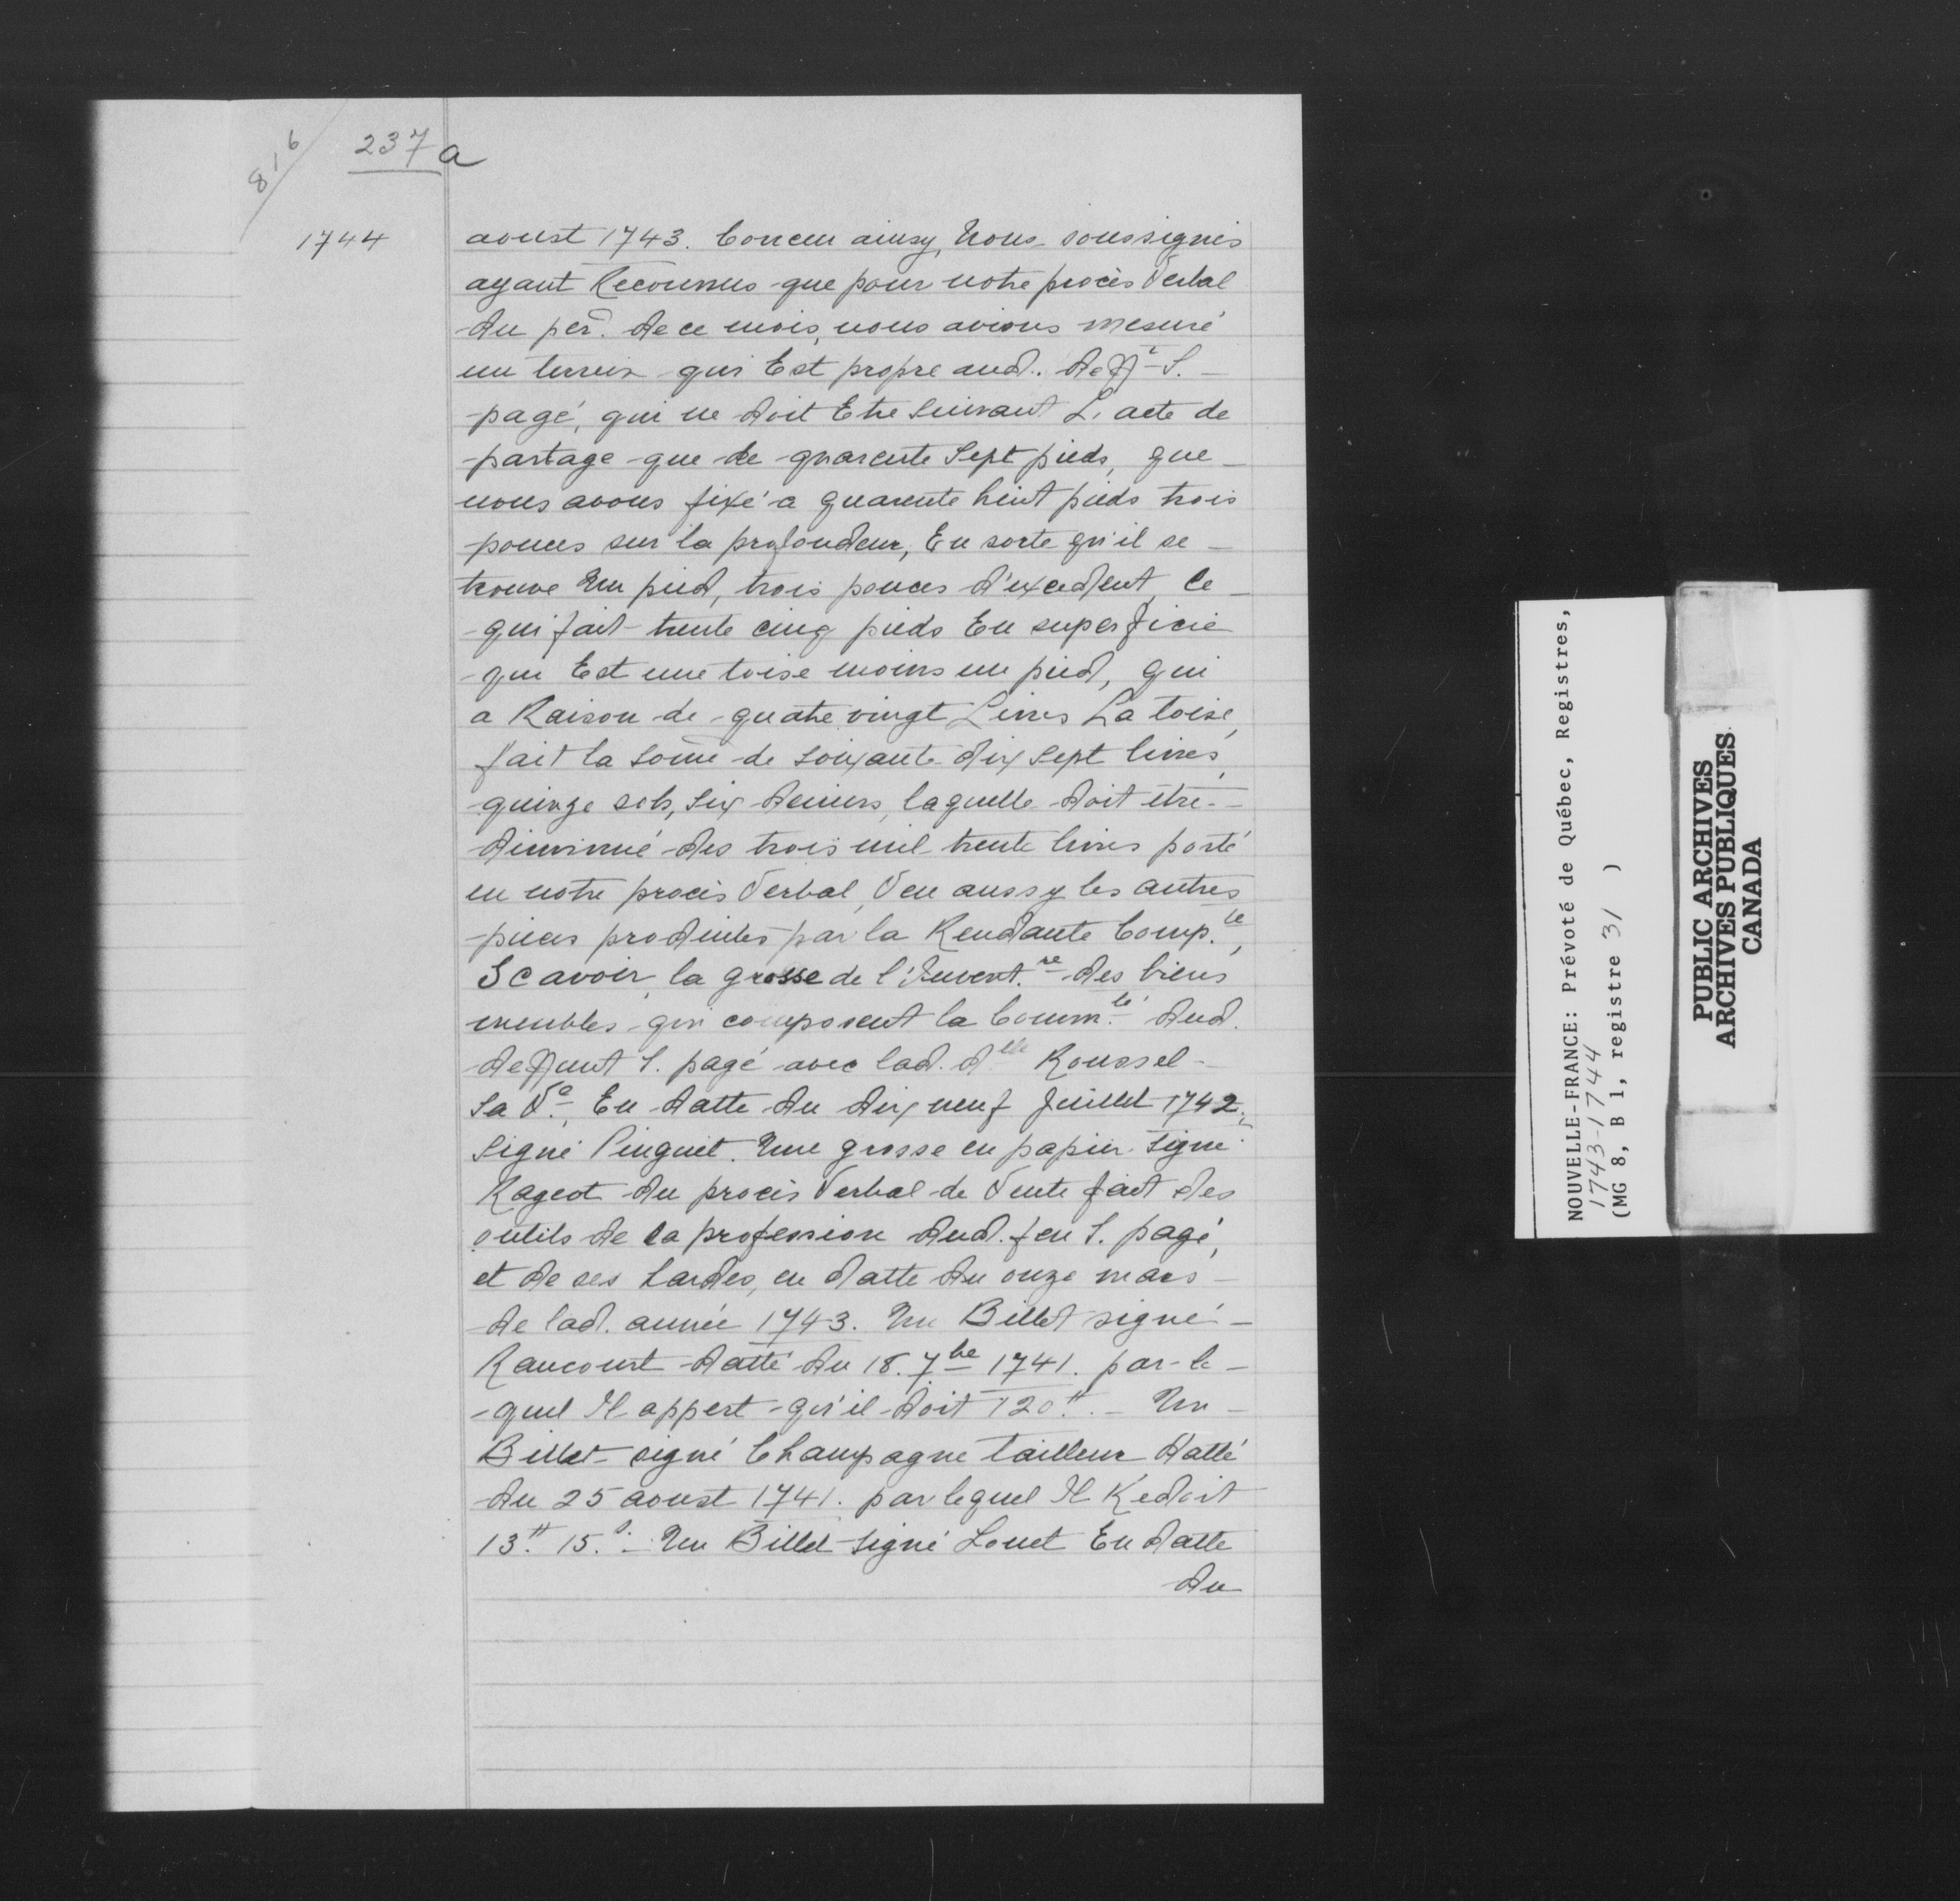 816
237a
1744
aoust 1743. Conceu ainsy, Nous soussignés
ayant Reconnus que pour notre procès Verbal
du per. de ce mois, nous avions mesuré
un terrein qui Est propre aud. deff.t S.
pagé, qui ne doit Etre suivant L'acte de
partage que de quarente Sept pieds, que
nous avons fixé a quarente huit pieds trois
pouces sur la profondeur, En sorte qu'il se
trouve Un pied, trois pouces d'excedent, Ce
qui fait trente cinq pieds En superficie
qui Est une toise moins un pied, qui
a Raison de quatre vingt Livres La toise,
fait la some de soixante dix sept livres,
quinze sols, six deniers, laquelle doit être
diminué des trois mil trente livres porté
en notre procès Verbal, Veu aussy les autres
pieces produites par la Rendante Comp.te,
Scavoir, la grosse de l'Invent.re des biens
meubles qui composent la Comm.té dud.
deffunt S. pagé avec lad. d.lle Roussel
Sa V.e, En datte du dix neuf Juillet 1742,
Signé Pinguet. Une grosse en papier signé
Rageot du procès Verbal de Vente fait des
outils de la profession dud. feu S. pagé,
et de ses hardes, en datte du onze mars
de lad. année 1743. Un Billet signé
Rancourt datté du 18. 7bre 1741. par le-
quel Il appert qu'il doit 120.# Un
Billet signé Champagne tailleur datté
du 25 aoust 1741. par lequel Il Redoit
13# 15.s Un Billet signé Louet En datte
du
NOUVELLE-FRANCE: Prévoté de Québec, Registres,
1743-1744
(MG 8, B 1, registre 31 )
PUBLIC ARCHIVES
ARCHIVES PUBLIQUES
CANADA